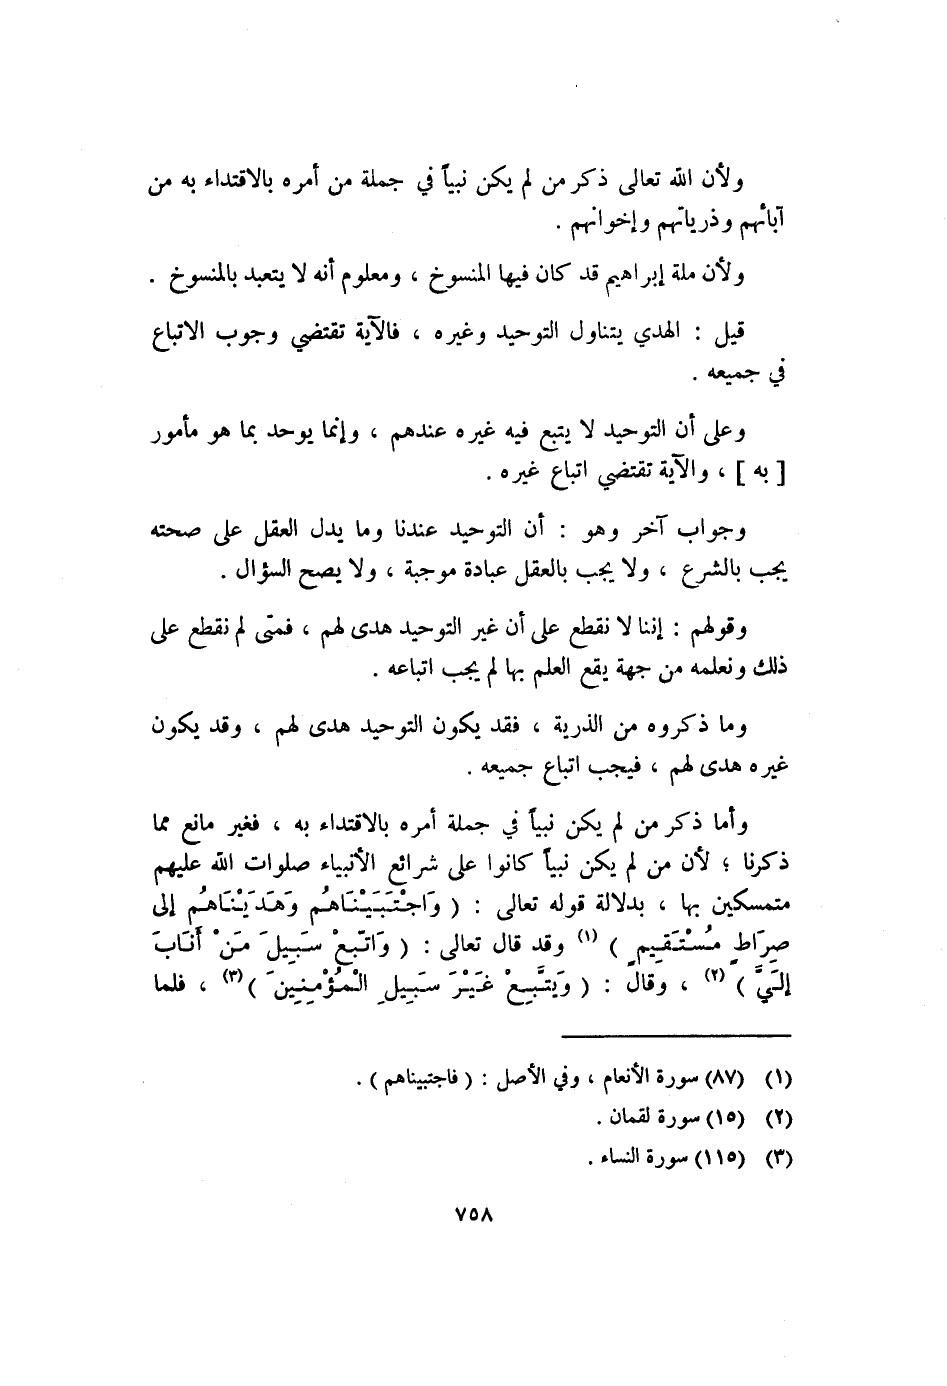 ولأن الله تعالى ذكر من لم يكن نبياً في جملة من أمره بالاقتداء به من
آبائهم وذرياتهم وإخوانهم .
ولأن ملة إبراهيم قد كان فيها المنسوخ ، ومعلوم أنه لا يتعبد بالمنسوخ .
قيل : الهدي يتناول التوحيد وغيره ، فالآية تقتضي وجوب الاتباع
في جميعه .
وعلى أن التوحيد لا يتبع فيه غيره عندهم ، وإنما يوحد بما هو مأمور
[ به ] ، والآية تقتضي اتباع غيره .
وجواب آخر وهو : أن التوحيد عندنا وما يدل العقل على صحته
يجب بالشرع ، ولا يجب بالعقل عبادة موجبة ، ولا يصح السؤال .
وقولهم : إننا لا نقطع على أن غير التوحيد هدى لهم ، فمتى لم نقطع على
ذلك ونعلمه من جهة يقع العلم بها لم يجب اتباعه .
وما ذكروه من الذرية ، فقد يكون التوحيد هدى لهم ، وقد يكون
غيره هدى لهم ، فيجب اتباع جميعه .
وأما ذكر من لم يكن نبياً في جملة أمره بالاقتداء به ، فغير مانع مما
ذكرنا ؛ لأن من لم يكن نبياً كانوا على شرائع الأنبياء صلوات الله عليهم
متمسكين بها ، بدلالة قوله تعالى : ( وَاجْتَبَيْنَاهُم وَهَدَيْنَاهُم إلى
صِرَاطٍ مُسْتَقِيمٍ ) (١) وقد قال تعالى : ( وَاتّبعْ سَبِيلَ مَنْ أَنَابَ
إلَيَّ ) (٢) ، وقال : ( وَيَتَّبِعْ غَيْرَ سَبِيلِ الْمُؤْمِنِينَ ) (٣) ، فلما
(١) (٨٧) سورة الأنعام ، وفي الأصل : ( فاجتبيناهم ) .
(٢) (١٥) سورة لقمان .
(٣) (١١٥) سورة النساء .
٧٥٨